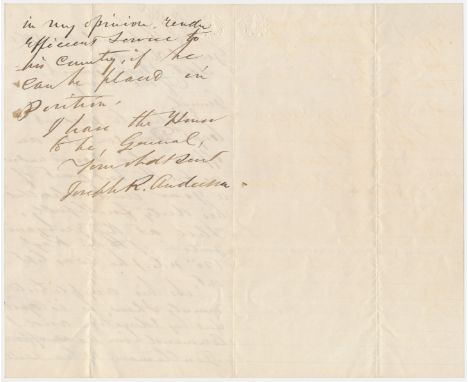 in my opinion render
efficient service to
his Country, if he
can be placed in
position.
I have the Honor
to be, General,
Your obdt Servt
Joseph R. Anderson